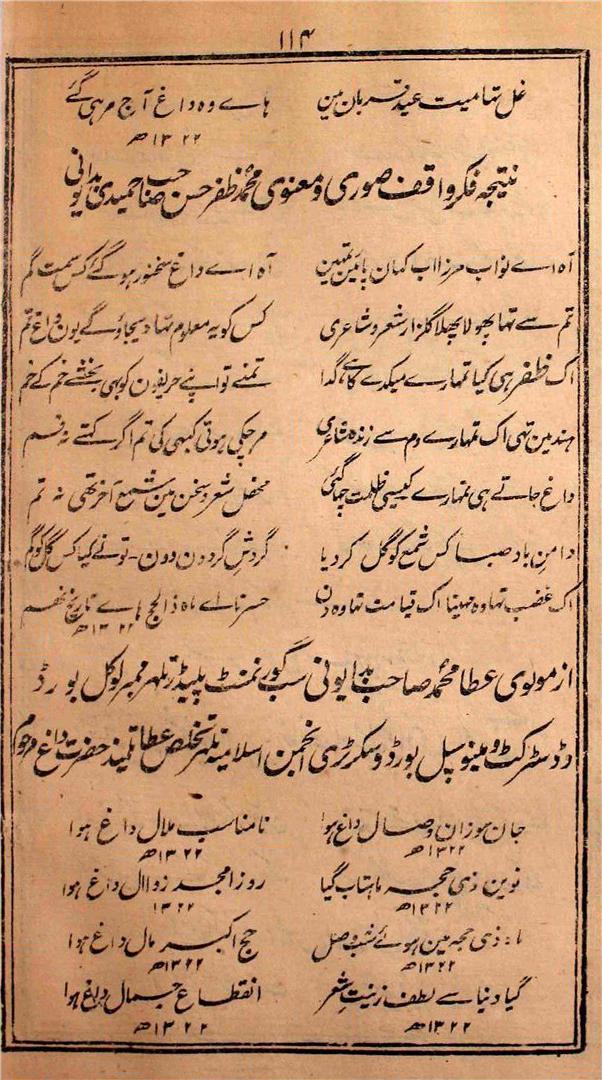 ۱۱۴
غل تھا میت عید قربان مین ہاے وہ داغ آج مر ہی گئے
۱۳۲۲ھ
نتیجہ فکر واقف صوری و معنوی محمد ظفر حسن صاحب حمیدی بدایونی
آہ اے نواب مرزا اب کہان پائین تمہین آہ اے داغ سخنور ہو گئے کس سمت گم
تم سے تھا پھولا پھلا گلزار شعر و شاعری کس کو یہ معلوم تھا دیجاؤگے یون داغ تم
اک ظفر ہی کیا تمہارے میکدے کا ہے گدا تمنے تو اپنے حریفون کو بھی بخشے خم کے خم
ہند مین تھی اک تمہارے دم سے زندہ شاعری مر چکی ہوتی کبھی کی تم اگر کہتے نہ قم
داغ جاتے ہی تمہارے کیسی ظلمت چھا گئی محفل شعر و سخن مین شمع آخر تھی نہ تم
دامن باد صبا کس شمع کو گل کر دیا گردش گردون دون - تونے کیا کس گل کو گم
اک غضب تھا وہ مہینا اک قیامت تھا وہ دن حسرتا اے ماہ ذالحج ہاے تاریخ نہم
۱۳۲۲ھ
از مولوی عطا محمد صاحب بدایونی سب گورنمنٹ پلیڈر تلہر ممبر لوکل بورڈ
و ڈسٹرکٹ و مینوسپل بورڈ و سکرٹری انجمن اسلامیہ تلہر تخلص عطا تلمیذ حضرت داغ مرحوم
جان سوزان وصال داغ ہوا نامناسب ملال داغ ہوا
۱۳۲۲ھ ۱۳۲۲ھ
نوین ذی حجہ ماہتاب گیا روز امجد زوال داغ ہوا
۱۳۲۲ھ ۱۳۲۲
ماہ ذی حجہ مین ہوئے شب وصل حج اکبر مال داغ ہوا
۱۳۲۲ھ ۱۳۲۲ھ
گیا دنیا سے لطف زینت شعر انقطاع جمال داغ ہوا
۱۳۲۲ھ ۱۳۲۲ھ